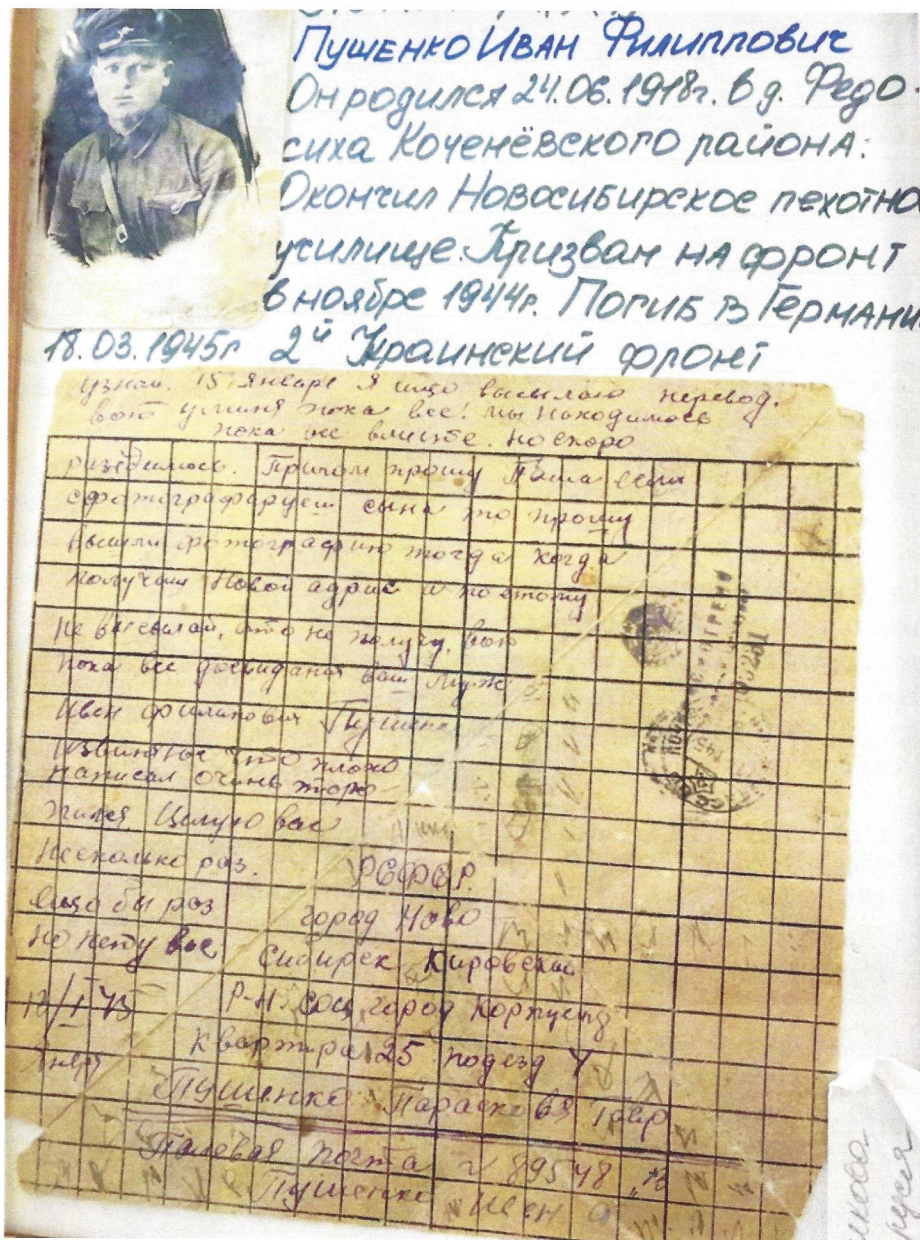 Пушенко Иван Филиппович
Он родился 24.06.1918г. в д. Федо-
сиха Коченёвского района.
Окончил Новосибирское пехотно
училище. Призван на фронт
в ноябре 1944г. Погиб в Германи
18.03.1945г 2й Украинский фронт
узнаи. 15 Январе я ищо высылаю перевод.
вот у миня пока все! мы находимось
пока все вмисте. но скоро
разедимось. Причом прошу Паша если
сфотографируеш сына то прошу
вышли фотографию тогда когда
получиш новой адрис а по етому
не высылай, ето не получу, вот
пока все досвиданя ваш Муж
Иван филипович Пушенко
извинятьс что плохо
написал очинь торо
пился. Целую вас
Несколько раз. РСФСР.
ищо бы раз город Ново
но нету вас Сибирск Кировский
12/I 45 Р-Н. соц город корпус
Январ квартира 25 подезд 4
Пушенко Парасковя Гавр
Полевая почта N 89548
Пушенко Иван